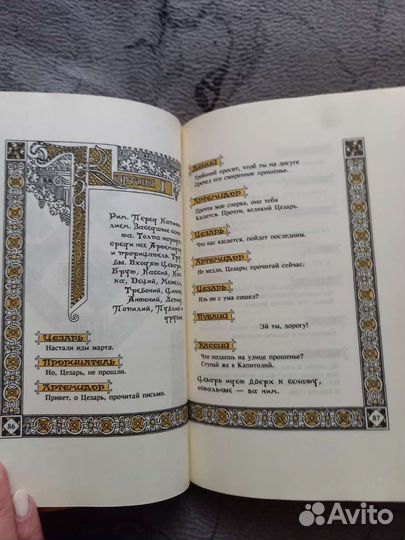 Явление I
Рим. Перед Капито-
лием. Заседание сена-
та. Толпа народа,
среди нее Артемидор
и прорицатель. Тру-
бы. Входят Цезарь,
Брут, Кассий, Кас-
ка, Деций, Метелл,
Требоний, Цинна,
Антоний, Лепид,
Попилий, Публий и
другие.
Цезарь
Настали иды марта.
Прорицатель
Но, Цезарь, не прошли.
Артемидор
Привет, о Цезарь, прочитай письмо.
86
Деций
Требоний просит, чтоб ты на досуге
Прочел его смиренное прошенье.
Артемидор
Прочти мое сперва, оно тебя
Касается. Прочти, великий Цезарь.
Цезарь
Что нас касается, пойдет последним.
Артемидор
Не медли, Цезарь; прочитай сейчас.
Цезарь
Иль он с ума сошел?
Публий
Эй ты, дорогу!
Кассий
Что подаешь на улице прошенье?
Ступай же в Капитолий.
Цезарь идет вверх к сенату,
остальные — за ним.
87
Avito